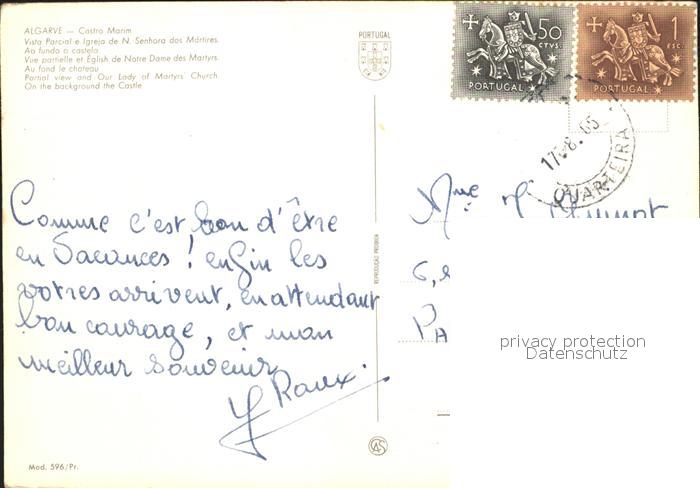 ALGARVE — Castro Marim
Vista Parcial e Igreja de N. Senhora dos Mártires.
Ao fundo o castelo
Vue partielle et Eglish de Notre Dame des Martyrs.
Au fond le chateau
Partial view and Our Lady of Martyrs' Church.
On the background the Castle
PORTUGAL
50
CTVS.
PORTUGAL
1
ESC.
PORTUGAL
17.8.65
QUARTEIRA
Comme c'est bon d'être
en Vacances ! enfin les
votres arrivent, en attendant
bon courage, et mon
meilleur souvenir
Y Roux.
REPRODUÇÃO PROIBIDA
Mme
6,
PA
privacy protection
Datenschutz
Mod. 596/Pr.